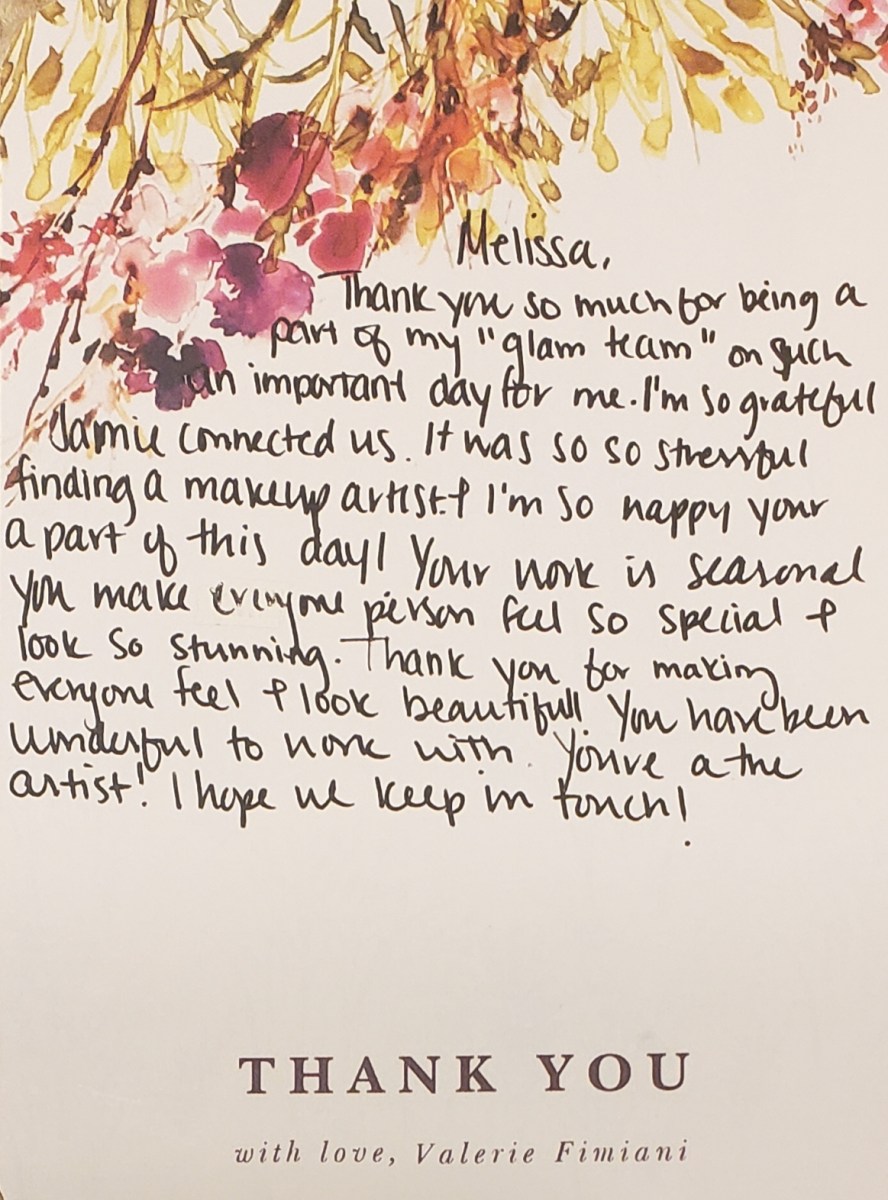 Melissa,
Thank you so much for being a
part of my "glam team" on such
an important day for me. I'm so grateful
Jamie connected us. It was so so stressful
finding a makeup artist & I'm so happy your
a part of this day! Your work is seasonal
you make everyone person feel so special &
look so stunning. Thank you for making
everyone feel & look beautiful! You have been
wonderful to work with. You've a the
artist! I hope we keep in touch!
THANK YOU
with love, Valerie Fimiani